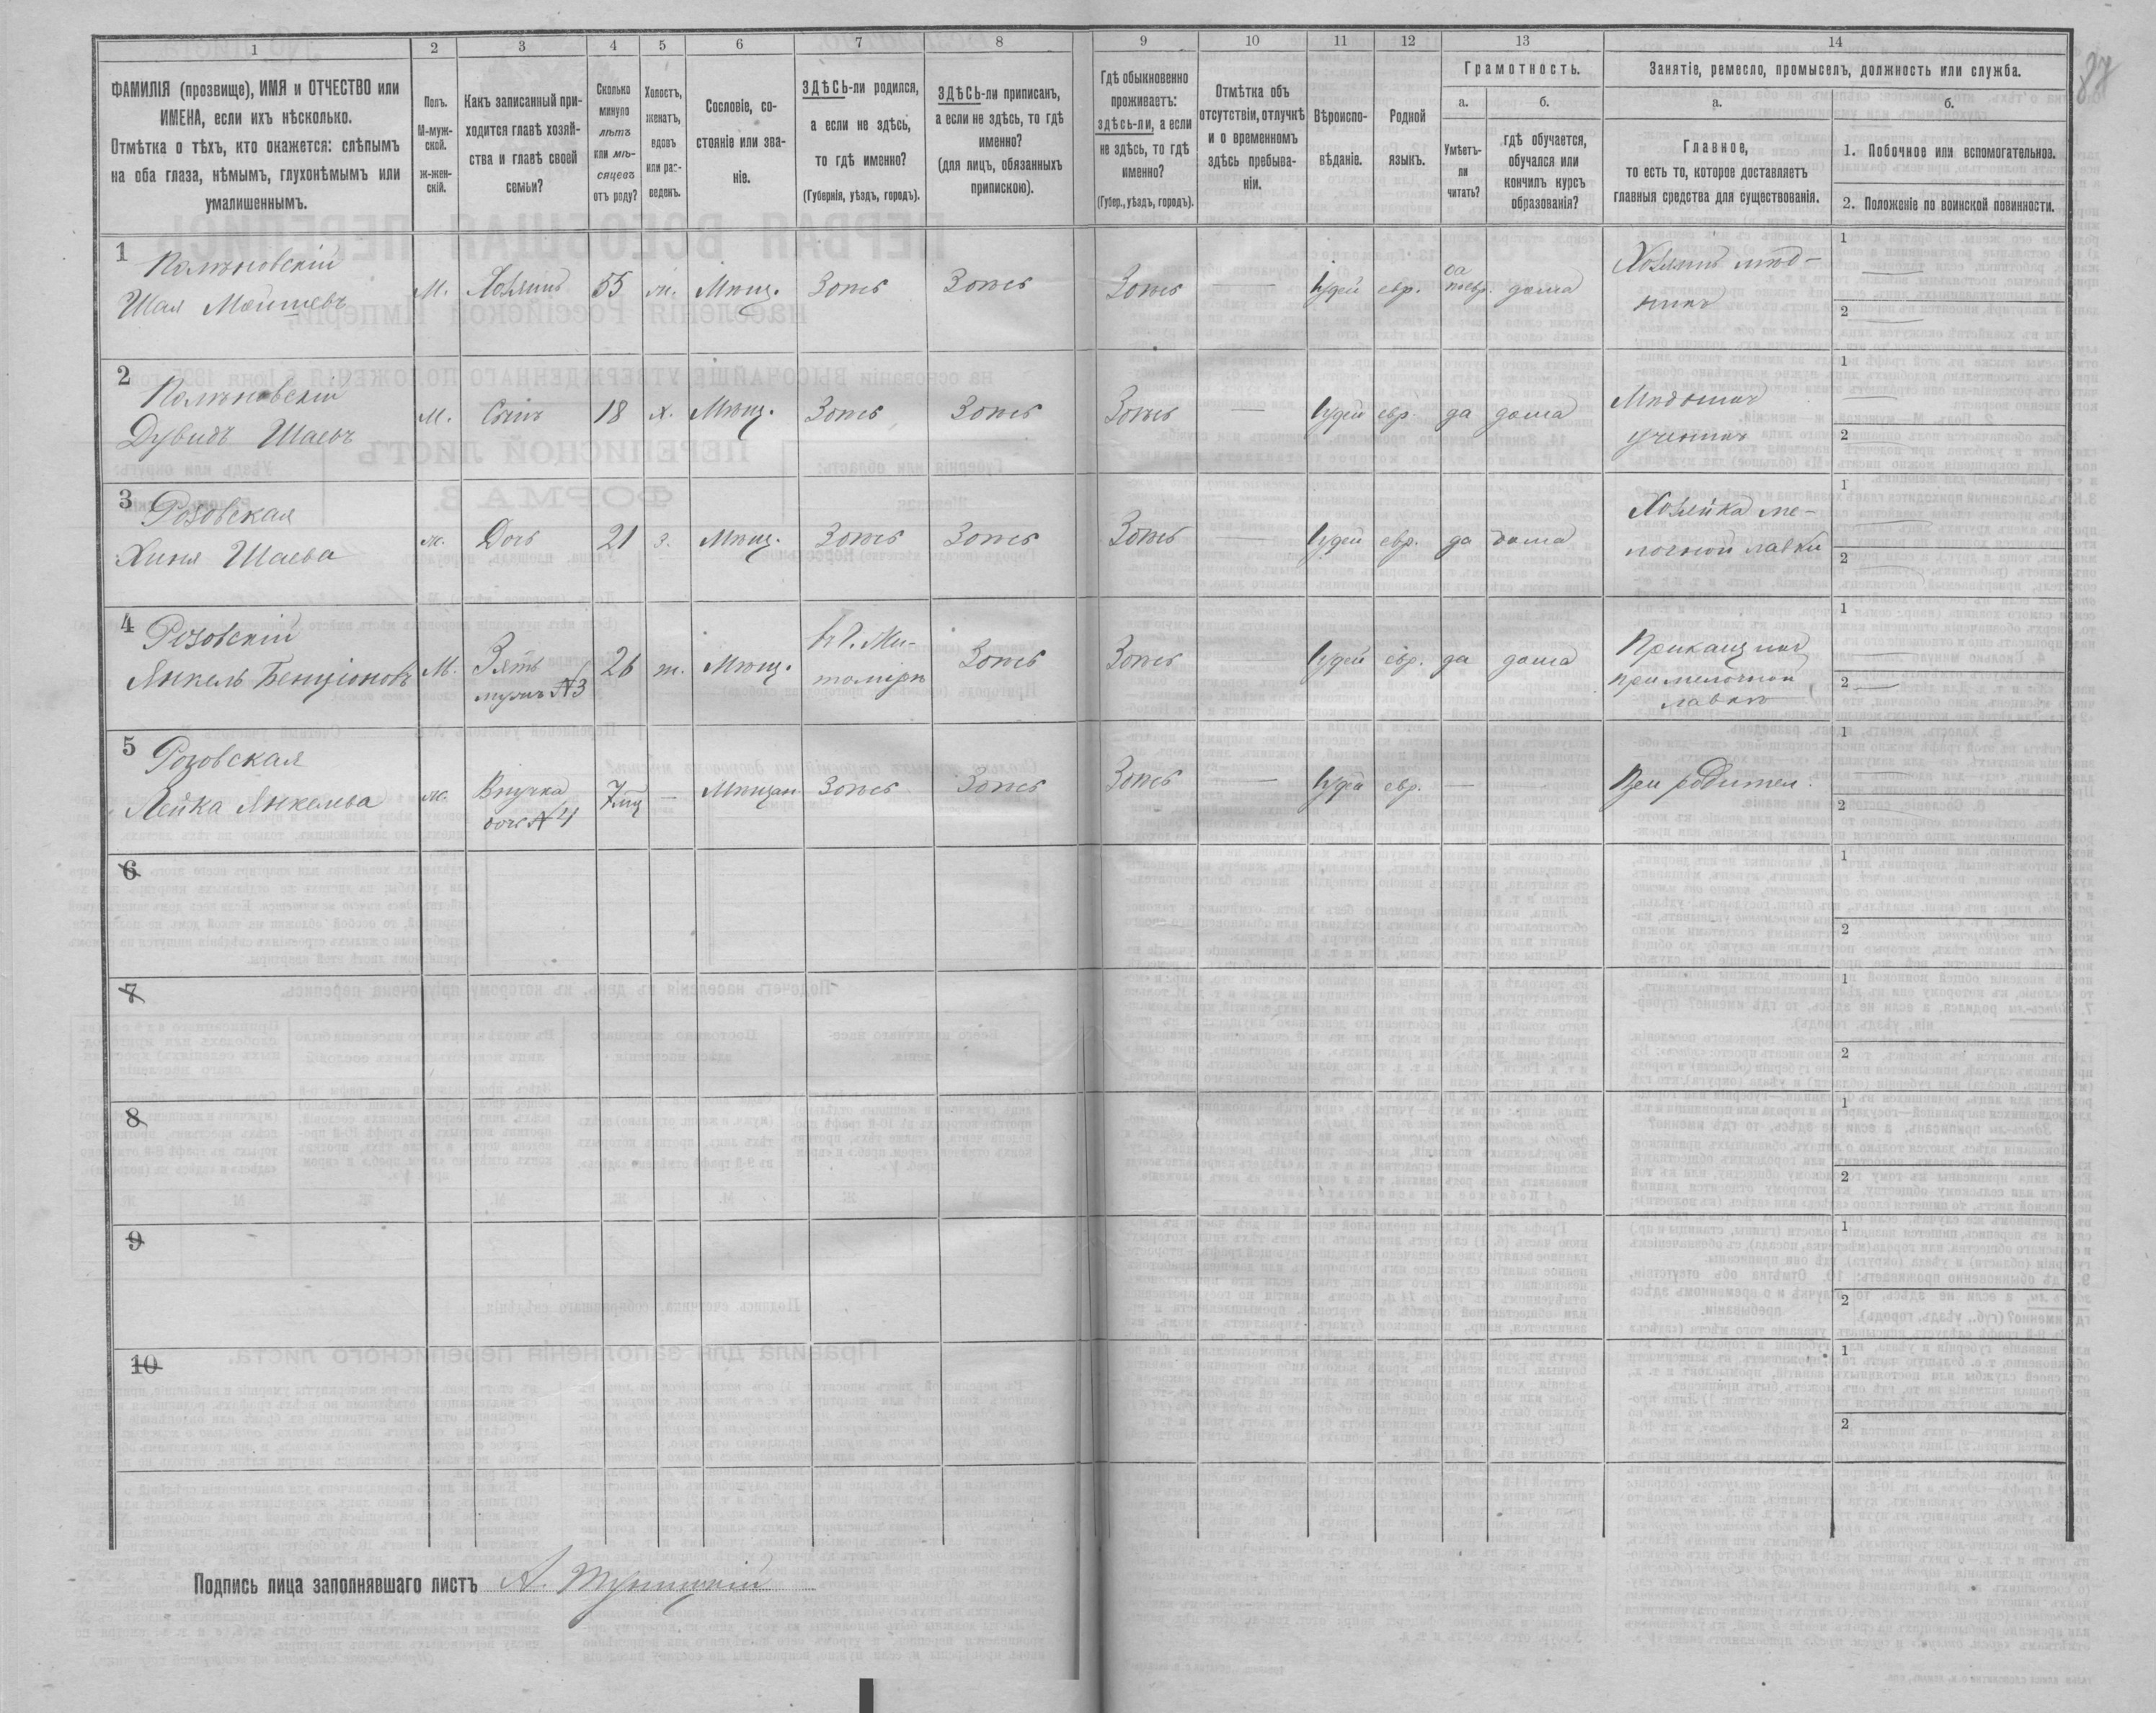 87
1 2 3 4 5 6 7 8 9 10 11 12 13 14
ФАМИЛІЯ (прозвище), ИМЯ и ОТЧЕСТВО или
ИМЕНА, если ихъ нѣсколько.
Отмѣтка о тѣхъ, кто окажется: слѣпымъ
на оба глаза, нѣмымъ, глухонѣмымъ или
умалишеннымъ.
Полъ.
М-муж-
ской.
Ж-жен-
скій.
Какъ записанный при-
ходится главѣ хозяй-
ства и главѣ своей
семьи?
Сколько
минуло
лѣтъ
или мѣ-
сяцевъ
отъ роду?
Холостъ,
женатъ,
вдовъ
или раз-
веденъ.
Сословіе, со-
стояніе или зва-
ніе.
ЗДѢСЬ-ли родился,
а если не здѣсь,
то гдѣ именно?
(Губернія, уѣздъ, городъ).
ЗДѢСЬ-ли приписанъ,
а если не здѣсь, то гдѣ
именно?
(для лицъ, обязанныхъ
припискою).
Гдѣ обыкновенно
проживаетъ:
здѣсь-ли, а если
не здѣсь, то гдѣ
именно?
(Губер., уѣздъ, городъ).
Отмѣтка объ
отсутствіи, отлучкѣ
и о временномъ
здѣсь пребыва-
ніи.
Вѣроиспо-
вѣданіе.
Родной
языкъ.
Грамотность.
а.
Умѣетъ-
ли
читать?
б.
гдѣ обучается,
обучался или
кончилъ курсъ
образованія?
Занятіе, ремесло, промыселъ, должность или служба.
а.
Главное,
то есть то, которое доставляетъ
главныя средства для существованія.
б.
1. Побочное или вспомогательное.
2. Положеніе по воинской повинности.
1
Шая
М. Хозяинъ 55 ж. Мѣщ. Здѣсь Здѣсь Здѣсь — Іудей евр. да по евр. дома
Хозяинъ мѣд-
никъ
1 —
2 —
2
Дувидъ Шаевъ
М. Сынъ 18 х. Мѣщ. Здѣсь Здѣсь Здѣсь — Іудей евр. да дома
ученикъ
1 —
2
3 Розовская
Хиня Шаева
ж. Дочь 21 з. Мѣщ. Здѣсь Здѣсь Здѣсь — Іудей евр. да дома
Хозяйка ме-
лочной лавки
1 —
2 —
4 Розовскій
Янкель Бенціоновъ
М. Зять
мужъ №3
26 ж. Мѣщ.
Здѣсь Здѣсь — Іудей евр. да дома
Прикащикъ
при мелочной
лавкѣ
1
2 —
5 Розовская
Лейка Янкелева
ж. Внучка
дочь №4
7 мц — Мѣщан Здѣсь Здѣсь Здѣсь — Іудей евр. —
При родител.
1 —
2
6
1
2
7
1
2
8
1
2
9
1
2
10
1
2
Подпись лица заполнявшаго листъ А.